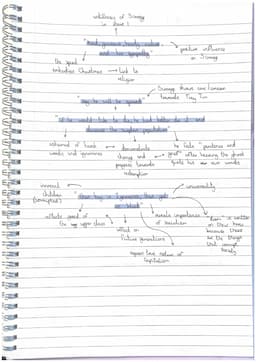 unlikeness of Scrooge
in stave 1
positive influence
on Scrooge
the speed
embodies Christmas → link to
religion
Scrooge shows concern
towards Tiny Tim
"say he will be spared"
"if he would like to die, he had better do it and
decrease the surplus population"
ashamed of harsh
words and ignorance
demonstrates
change and
progress towards
redemption
he feels "penitence and
grief" after hearing the ghost
quote his own words
universal
children
(corrupted)
"This boy is Ignorance, this girl
is Want"
universality
effects
upper class
effect on
future generations
reveals importance
of education
represent nature of
Capitalism
is written
on their brows
because these
are the things
that corrupt
society